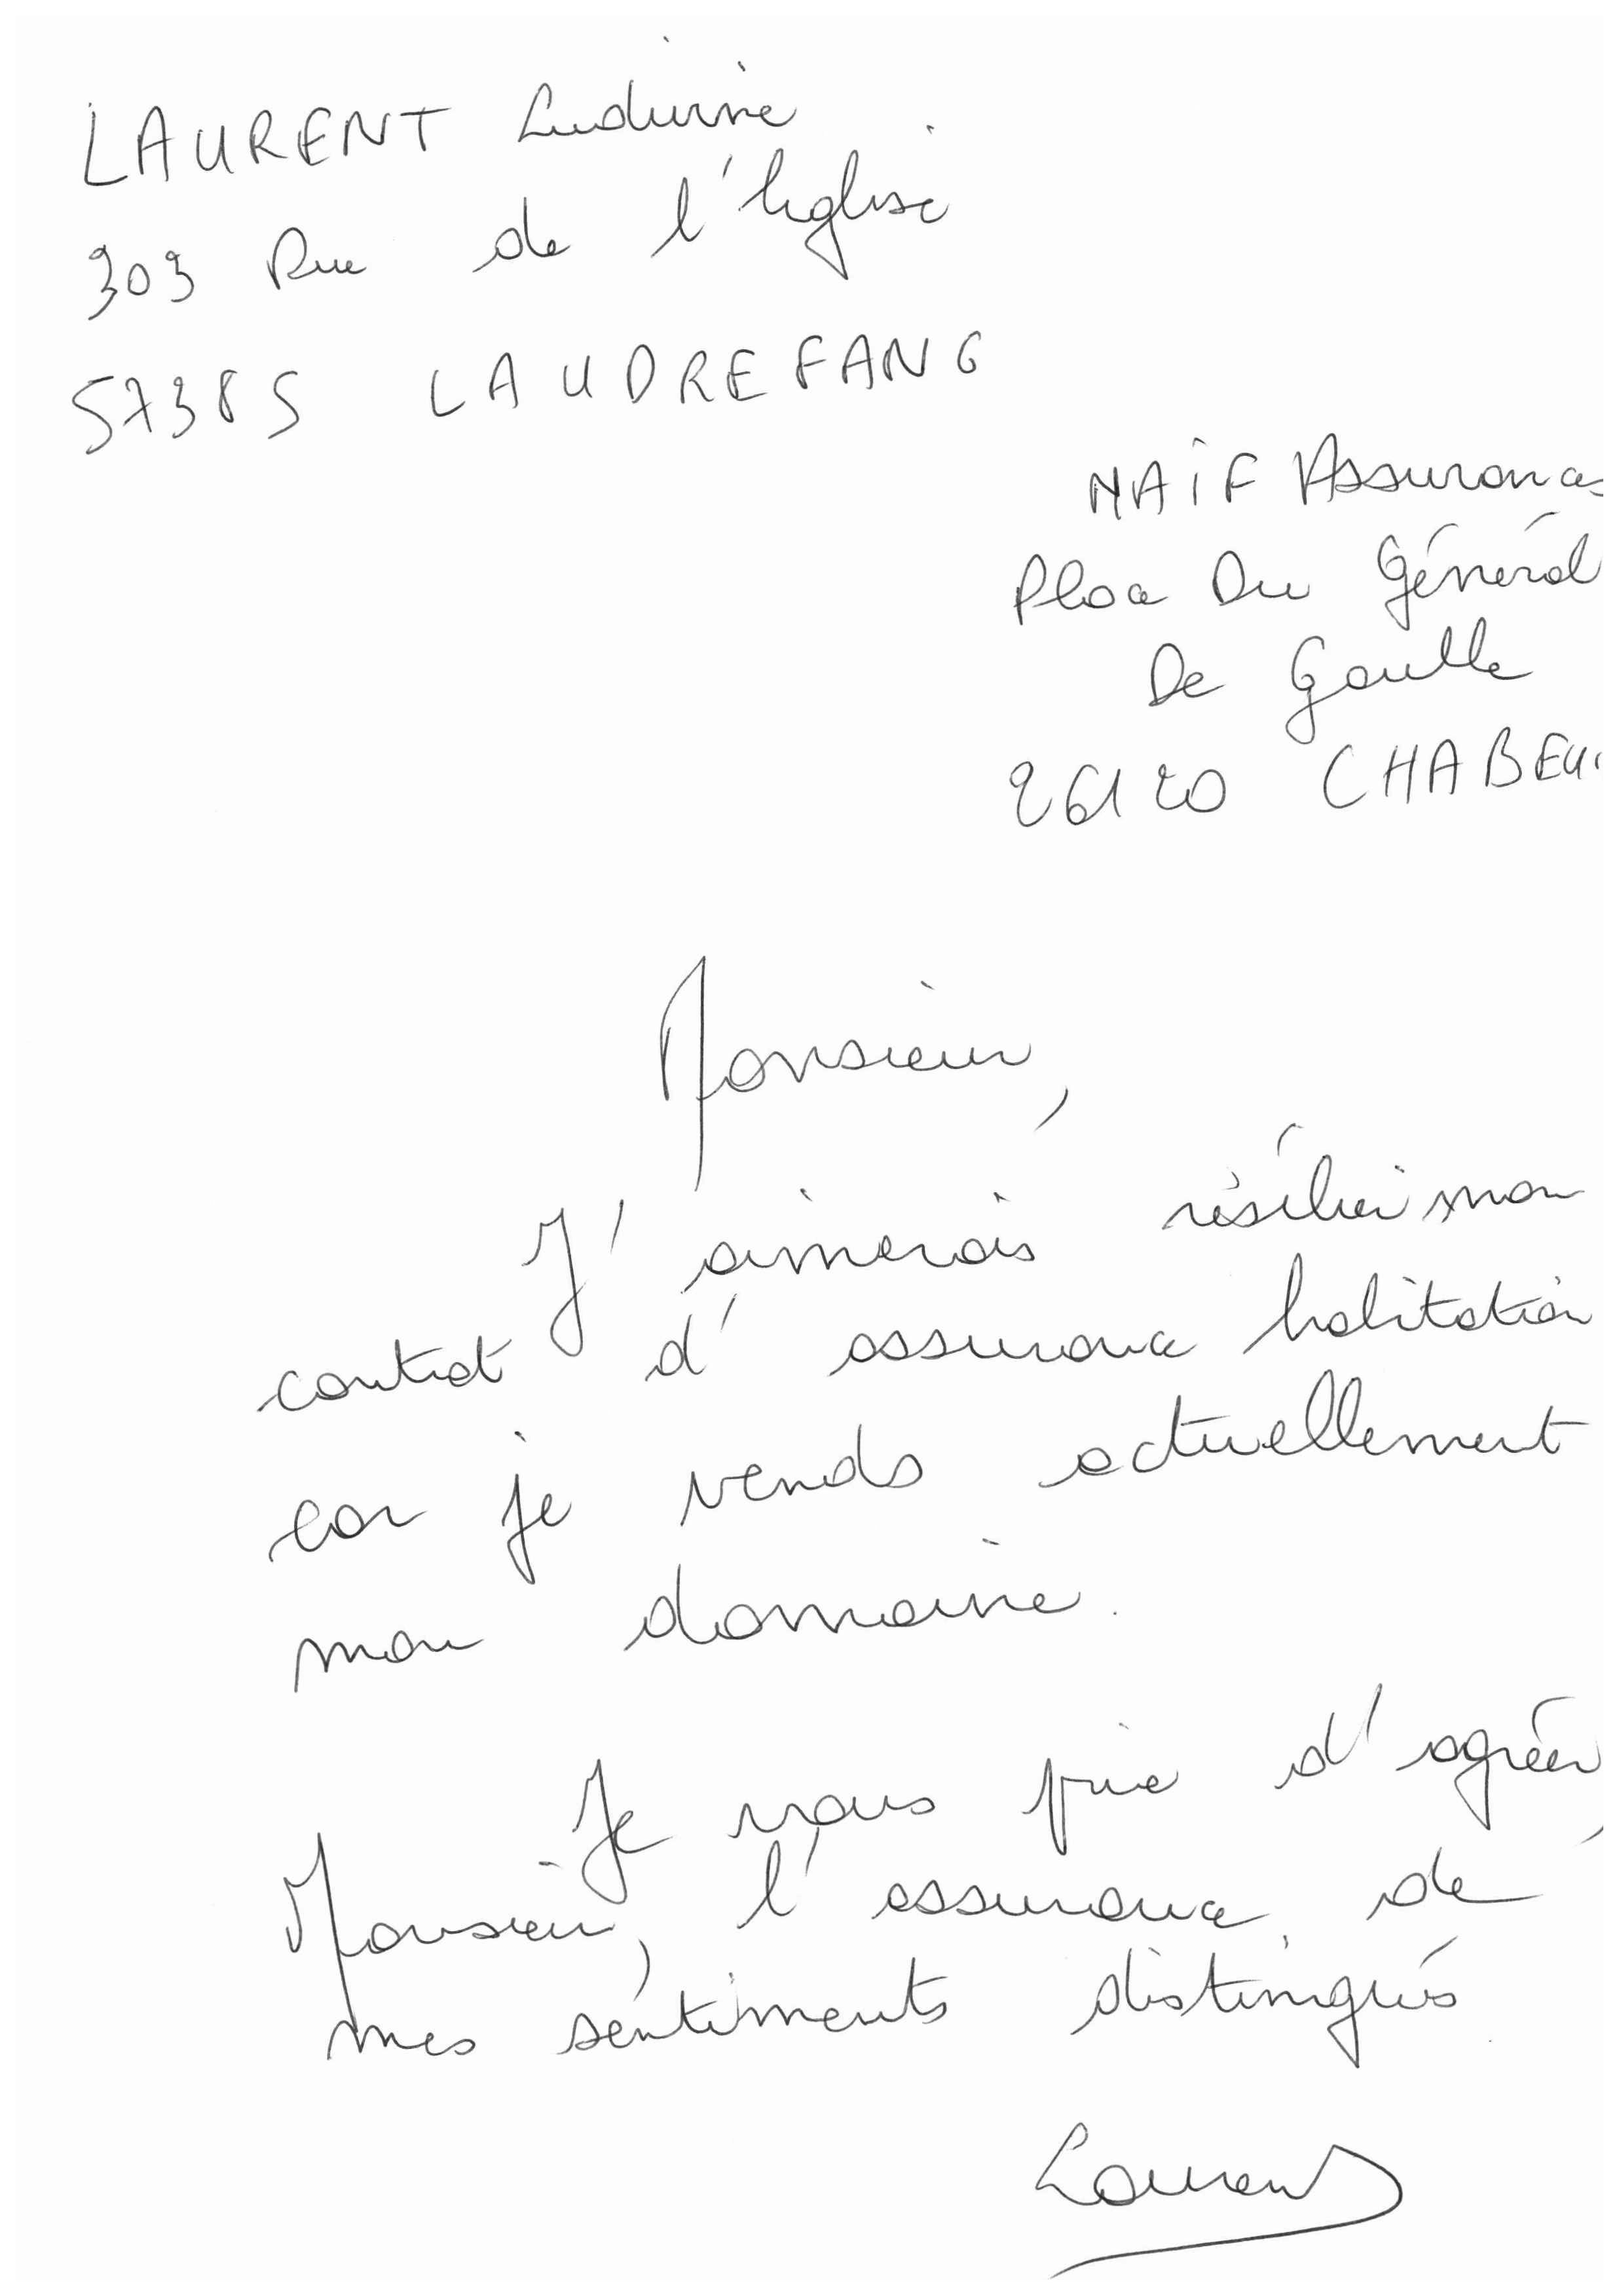 LAURENT Ludivine
303 Rue de l'église
57385 LAUDREFANG
MAIF Assurances
Place Du Général
De Gaulle
26120 CHABEUI
Monsieur,
J'aimerais résilier mon
contrat d'assurance habitation
car je vends actuellement
mon domaine.
Je vous prie d'agréer,
Monsieur, l'assurance de
mes sentiments distingués.
Laurent